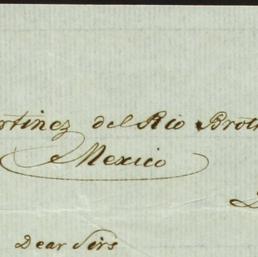 rtinez del Rio Broth
Mexico
Dear Sirs